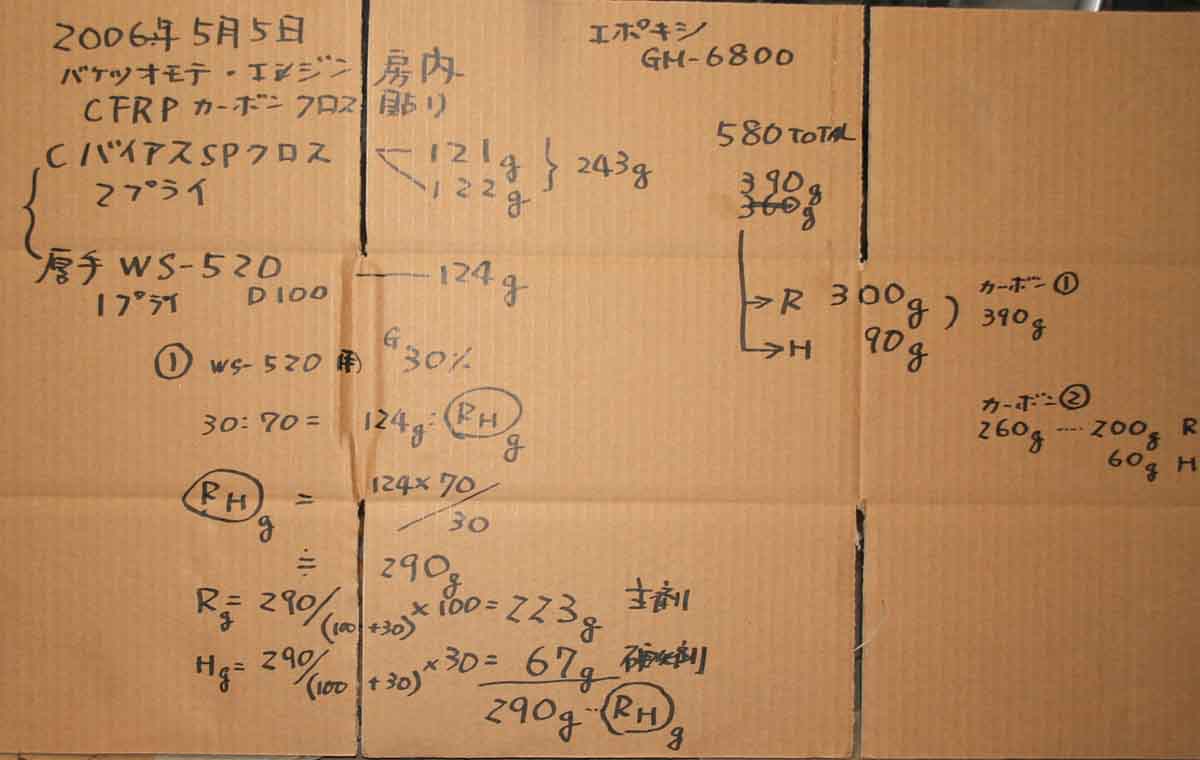 2006年5月5日
バケツオモテ・エンジン房内
CFRP カーボンクロス貼り
CバイアスSPクロス 121g
122g } 243g
2プライ
厚手 WS-520 124g
1プライ D100
① WS-520用 G 30%
30:70= 124g:RHg
RHg = 124×70/30
≒ 290g
Rg= 290/(100+30)×100=223g 主剤
Hg= 290/(100+30)×30= 67g 硬化剤
290g…RHg
エポキシ
GM-6800
580 TOTAL
390g
360g
→R 300g
→H 90g
カーボン①
390g
カーボン②
260g …… 200g R
60g H